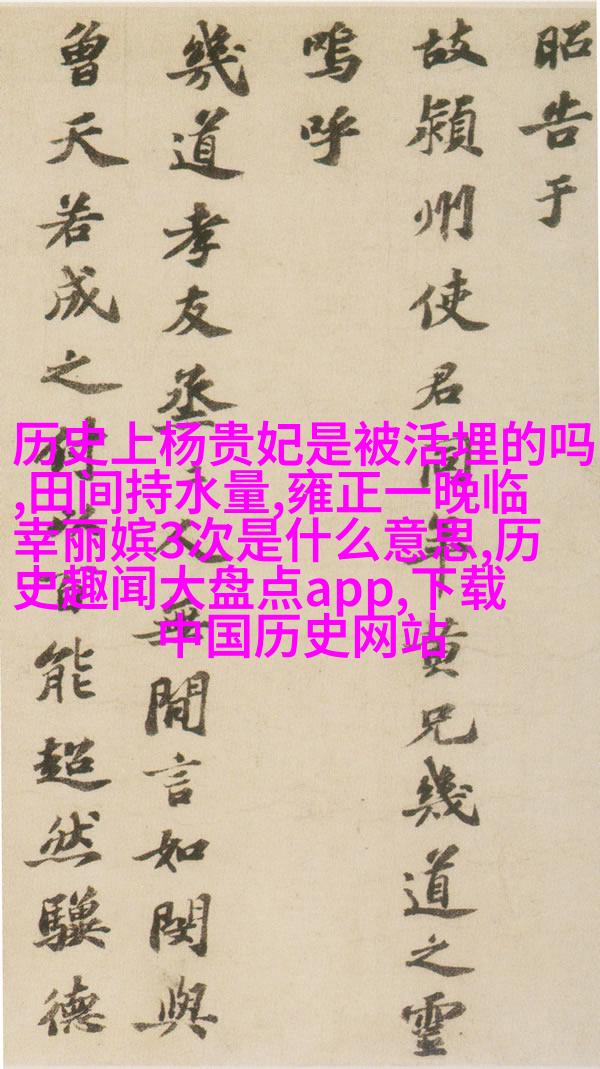 昭告于
故潁州使君同年黄兄幾道之靈
嗚呼
幾道孝友烝人無間言如閔與
曾天若成之能超然驥德
历史上杨贵妃是被活埋的吗
,田间持水量,雍正一晚临
幸丽嫔3次是什么意思,历
史趣闻大盘点app,下载
中国历史网站